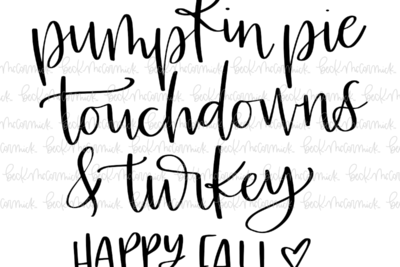 pumpkin pie
touchdowns
& turkey
HAPPY FALL ♡